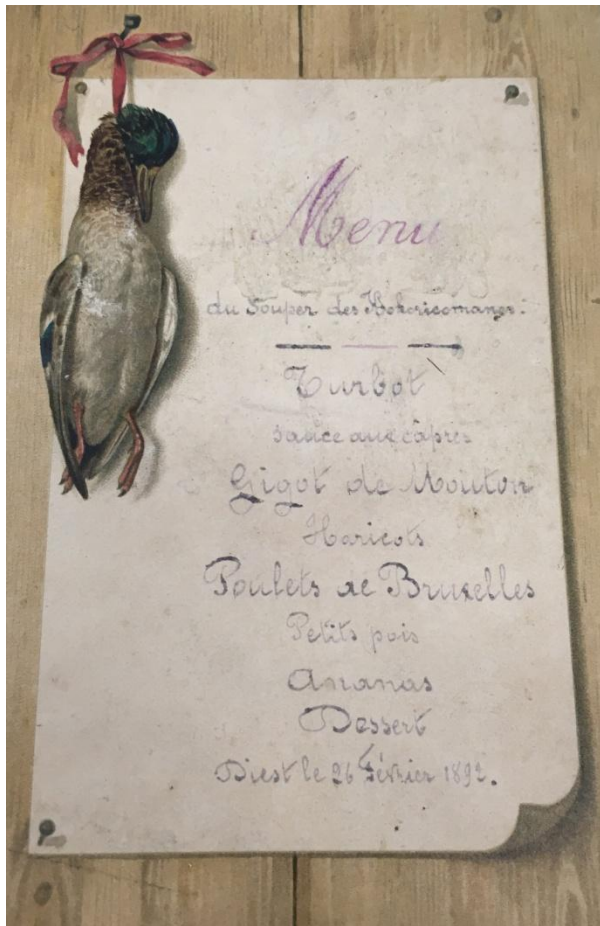 Menu
du Souper des Kokoricomanes.
Turbot
sauce aux câpres
Gigot de Mouton
Haricots
Poulets de Bruxelles
Petits pois
Ananas
Dessert
Diest le 26 Février 1892.